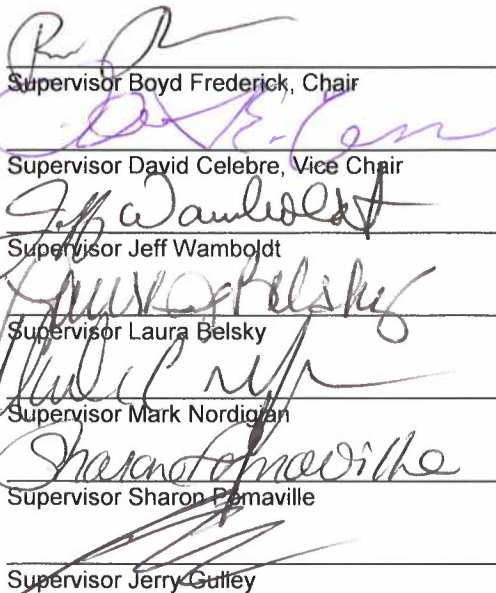 Supervisor Boyd Frederick, Chair
Supervisor David Celebre, Vice Chair
Jeff Wamboldt
Supervisor Jeff Wamboldt
Laura Belsky
Supervisor Laura Belsky
Supervisor Mark Nordigian
Sharon Pomaville
Supervisor Sharon Pomaville
Supervisor Jerry Gulley